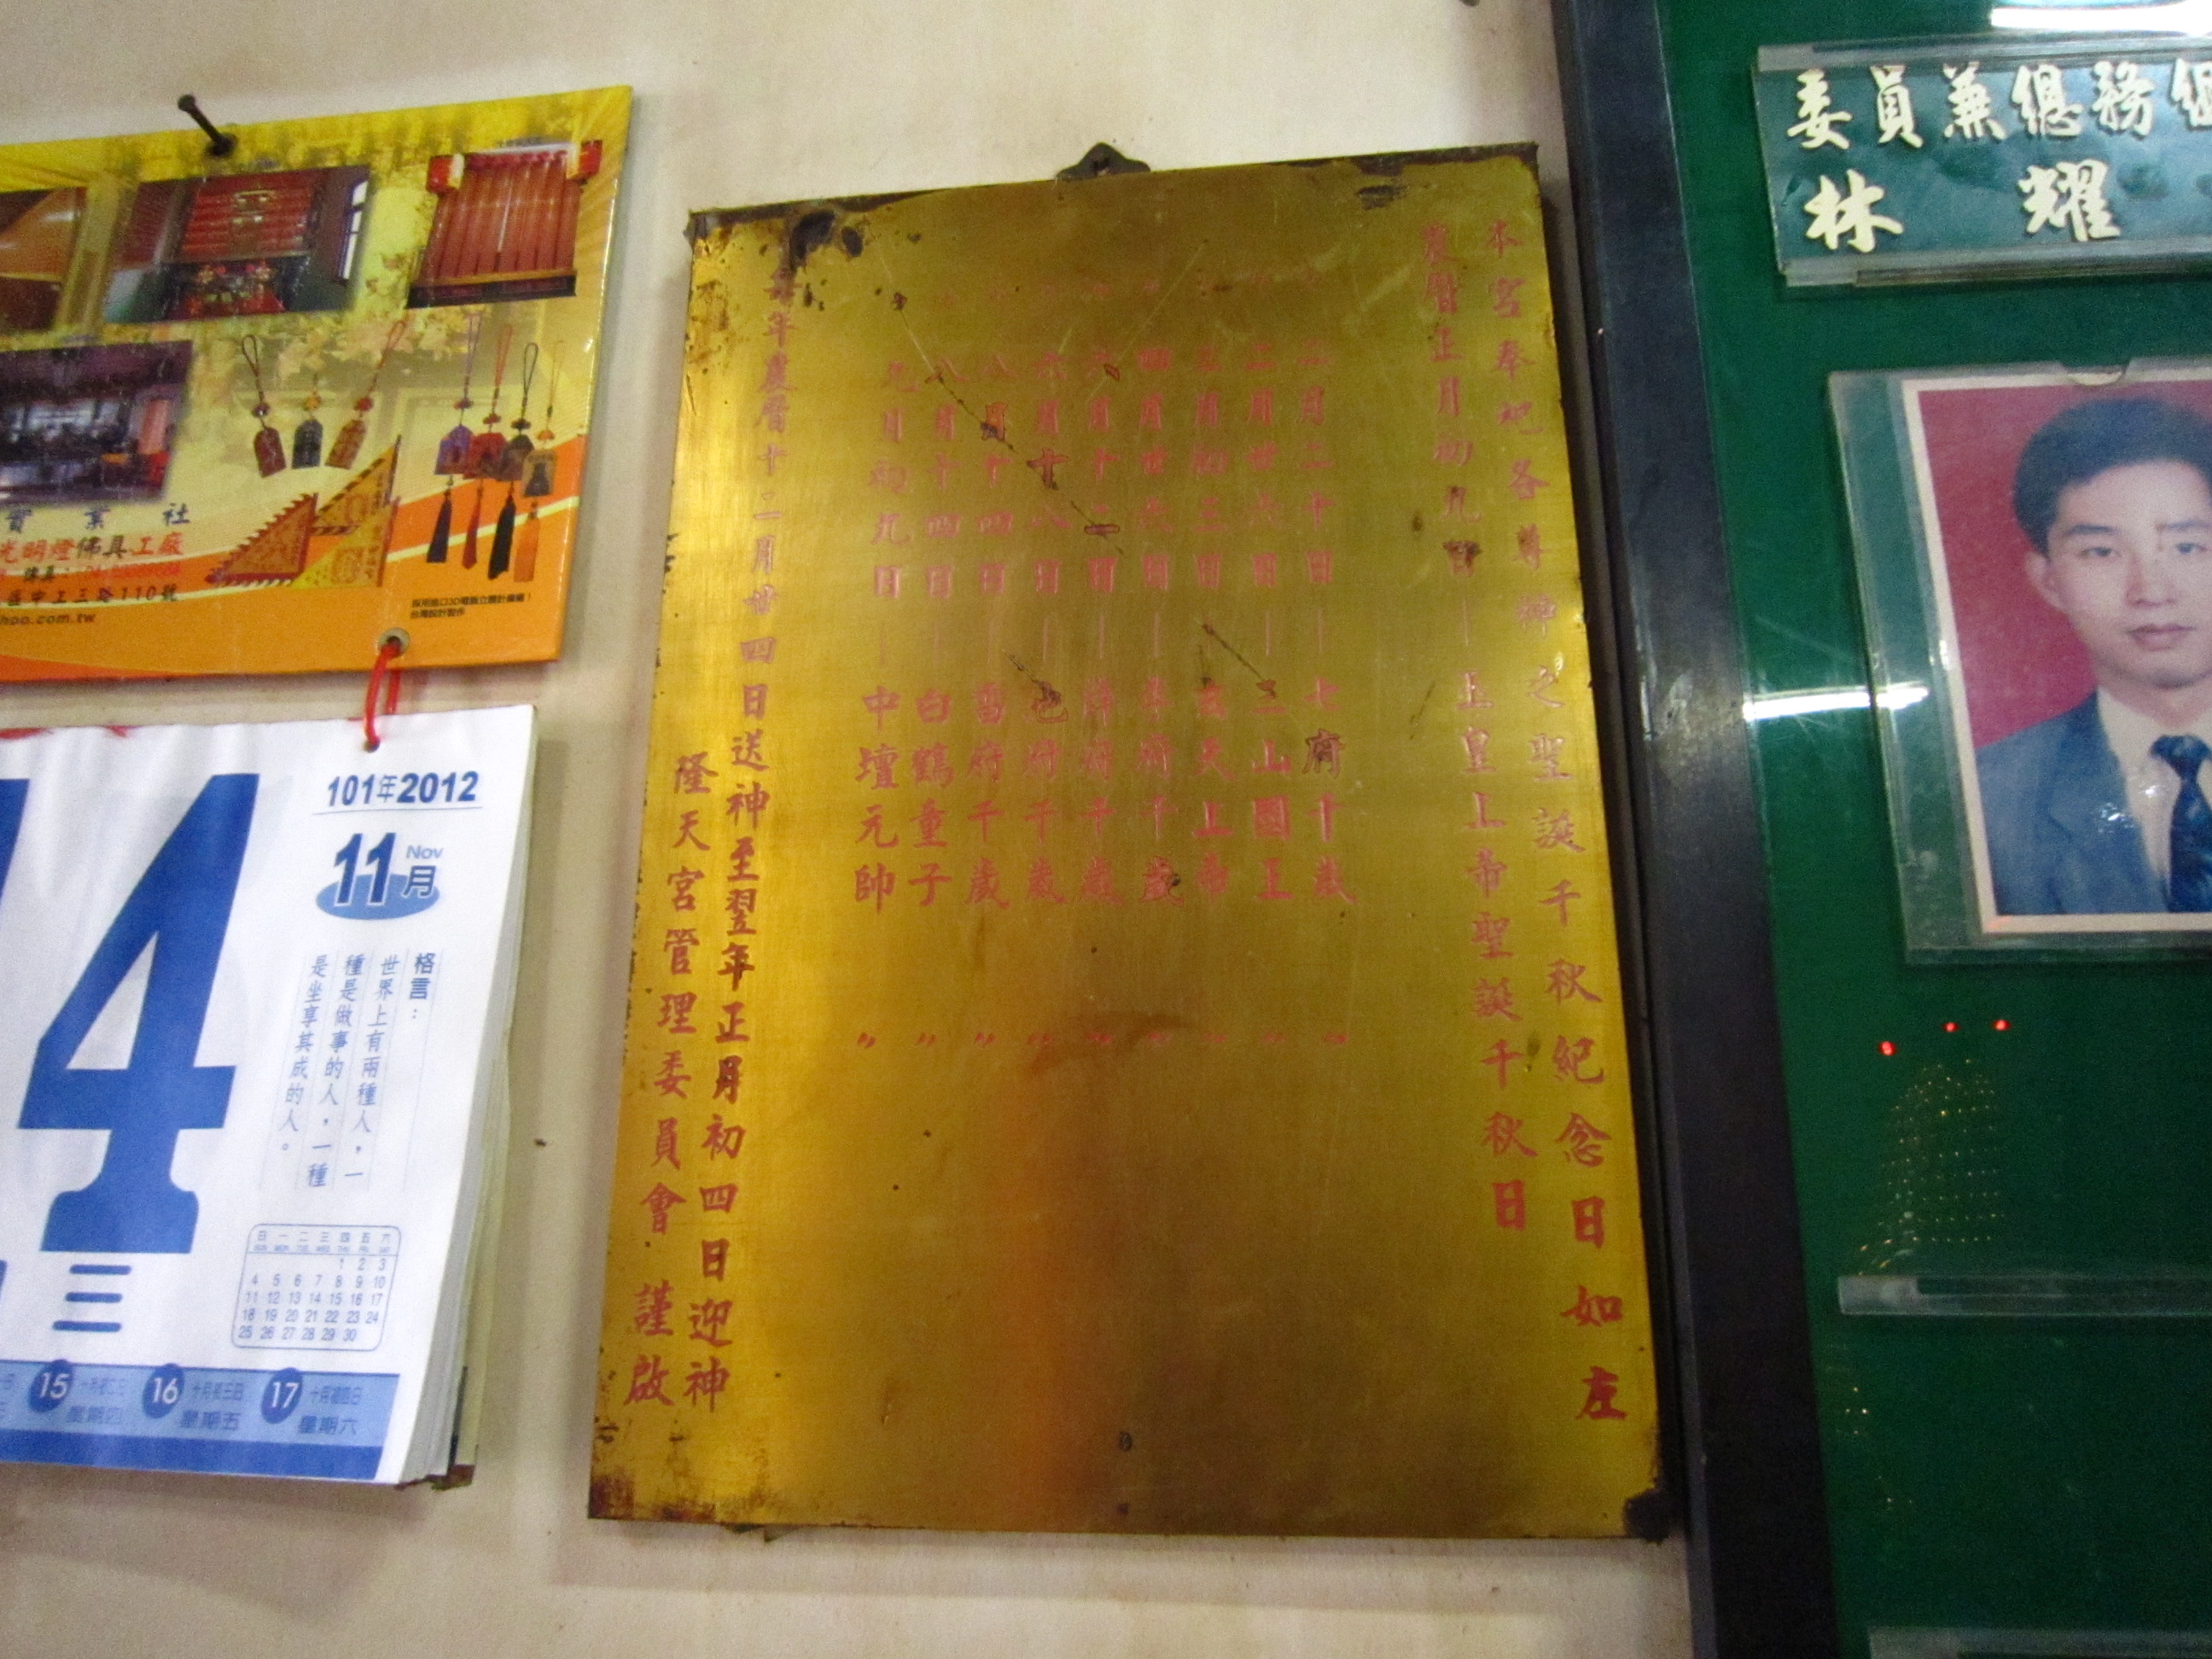 本宮奉祀各尊神之聖誕千秋紀念日如左
農曆正月初九日—玉皇上帝聖誕千秋日
二月二十日—七府千歲 〃
二月廿六日—三山國王 〃
三月初三日—玄天上帝 〃
四月廿六日—李府千歲 〃
六月十二日 府千歲 〃
六月十八日—池府千歲 〃
八月十四日 府千歲 〃
八月十四日—白鶴童子 〃
九月初九日—中壇元帥 〃
每年農曆十二月廿四日送神至翌年正月初四日迎神
隆天宮管理委員會 謹啟
委員兼總務
林 耀
實業社
光明燈佛具工廠
佛具:
區中工三路110號
hoo.com.tw
採用進口3D電腦立體針繡機!
台灣設計製作
101年2012
11月
Nov
4
三
格言:
世界上有兩種人,一
種是做事的人,一種
是坐享其成的人。
日 一 二 三 四 五 六
SUN MON TUE WED THU FRI SAT
1 2 3
4 5 6 7 8 9 10
11 12 13 14 15 16 17
18 19 20 21 22 23 24
25 26 27 28 29 30
15 十月初二日 星期四
16 十月初三日 星期五
17 十月初四日 星期六